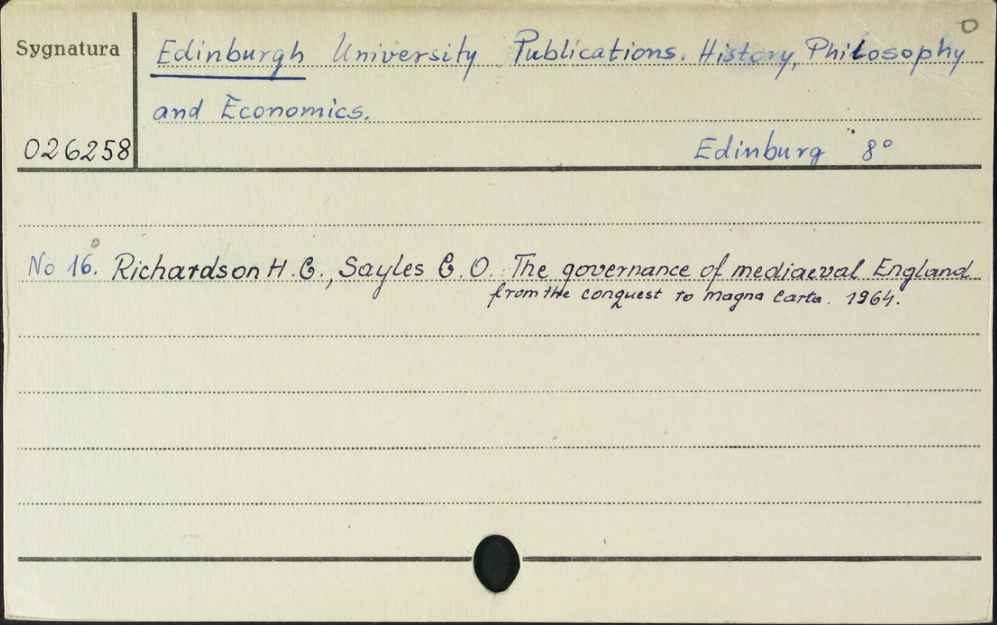 Sygnatura
Edinburgh University Publications. History, Philosophy
and Economics.
026258
Edinburg 8°
No 16. Richardson H. G., Sayles G. O. The governance of mediaeval England
from the conquest to Magna Carta. 1964.